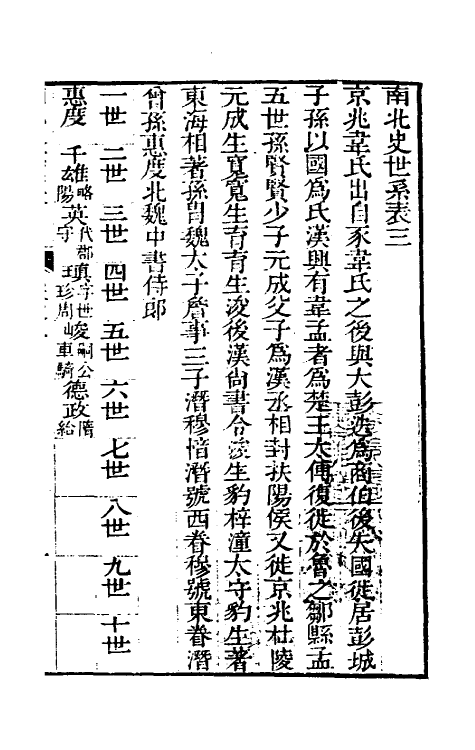 南北史世系表三
京兆韋氏出自豕韋氏之後與大彭迭爲商伯後失國徙居彭城
子孫以國爲氏漢興有韋孟者爲楚王太傅復徙於魯之鄒縣孟
五世孫賢賢少子元成父子爲漢丞相封扶陽侯又徙京兆杜陵
元成生寬寬生育育生浚後漢尚書令浚生豹梓潼太守豹生著
東海相著孫胄魏太子詹事三子潛穆愔潛號西眷穆號東眷潛
曾孫惠度北魏中書侍郎
一世 二世 三世 四世 五世 六世 七世 八世 九世 十世
惠度 千雄略陽守 英代郡守 瑱字世珍周 峻嗣公車騎 德政隋給